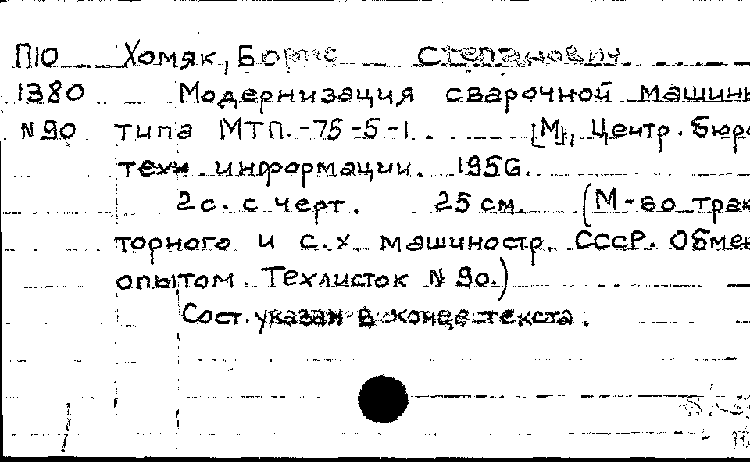 П10 Хомяк, Борис Степанович
1380 Модернизация сварочной машины
N90 типа МТП.-75-5-1. [М], Центр. бюро
техн информации. 1956.
2 с. с черт. 25 см. (М-во трак
торного и с.х. машиностр. СССР. Обмен
опытом. Техлисток N 90.)
Сост. указан в конце текста.